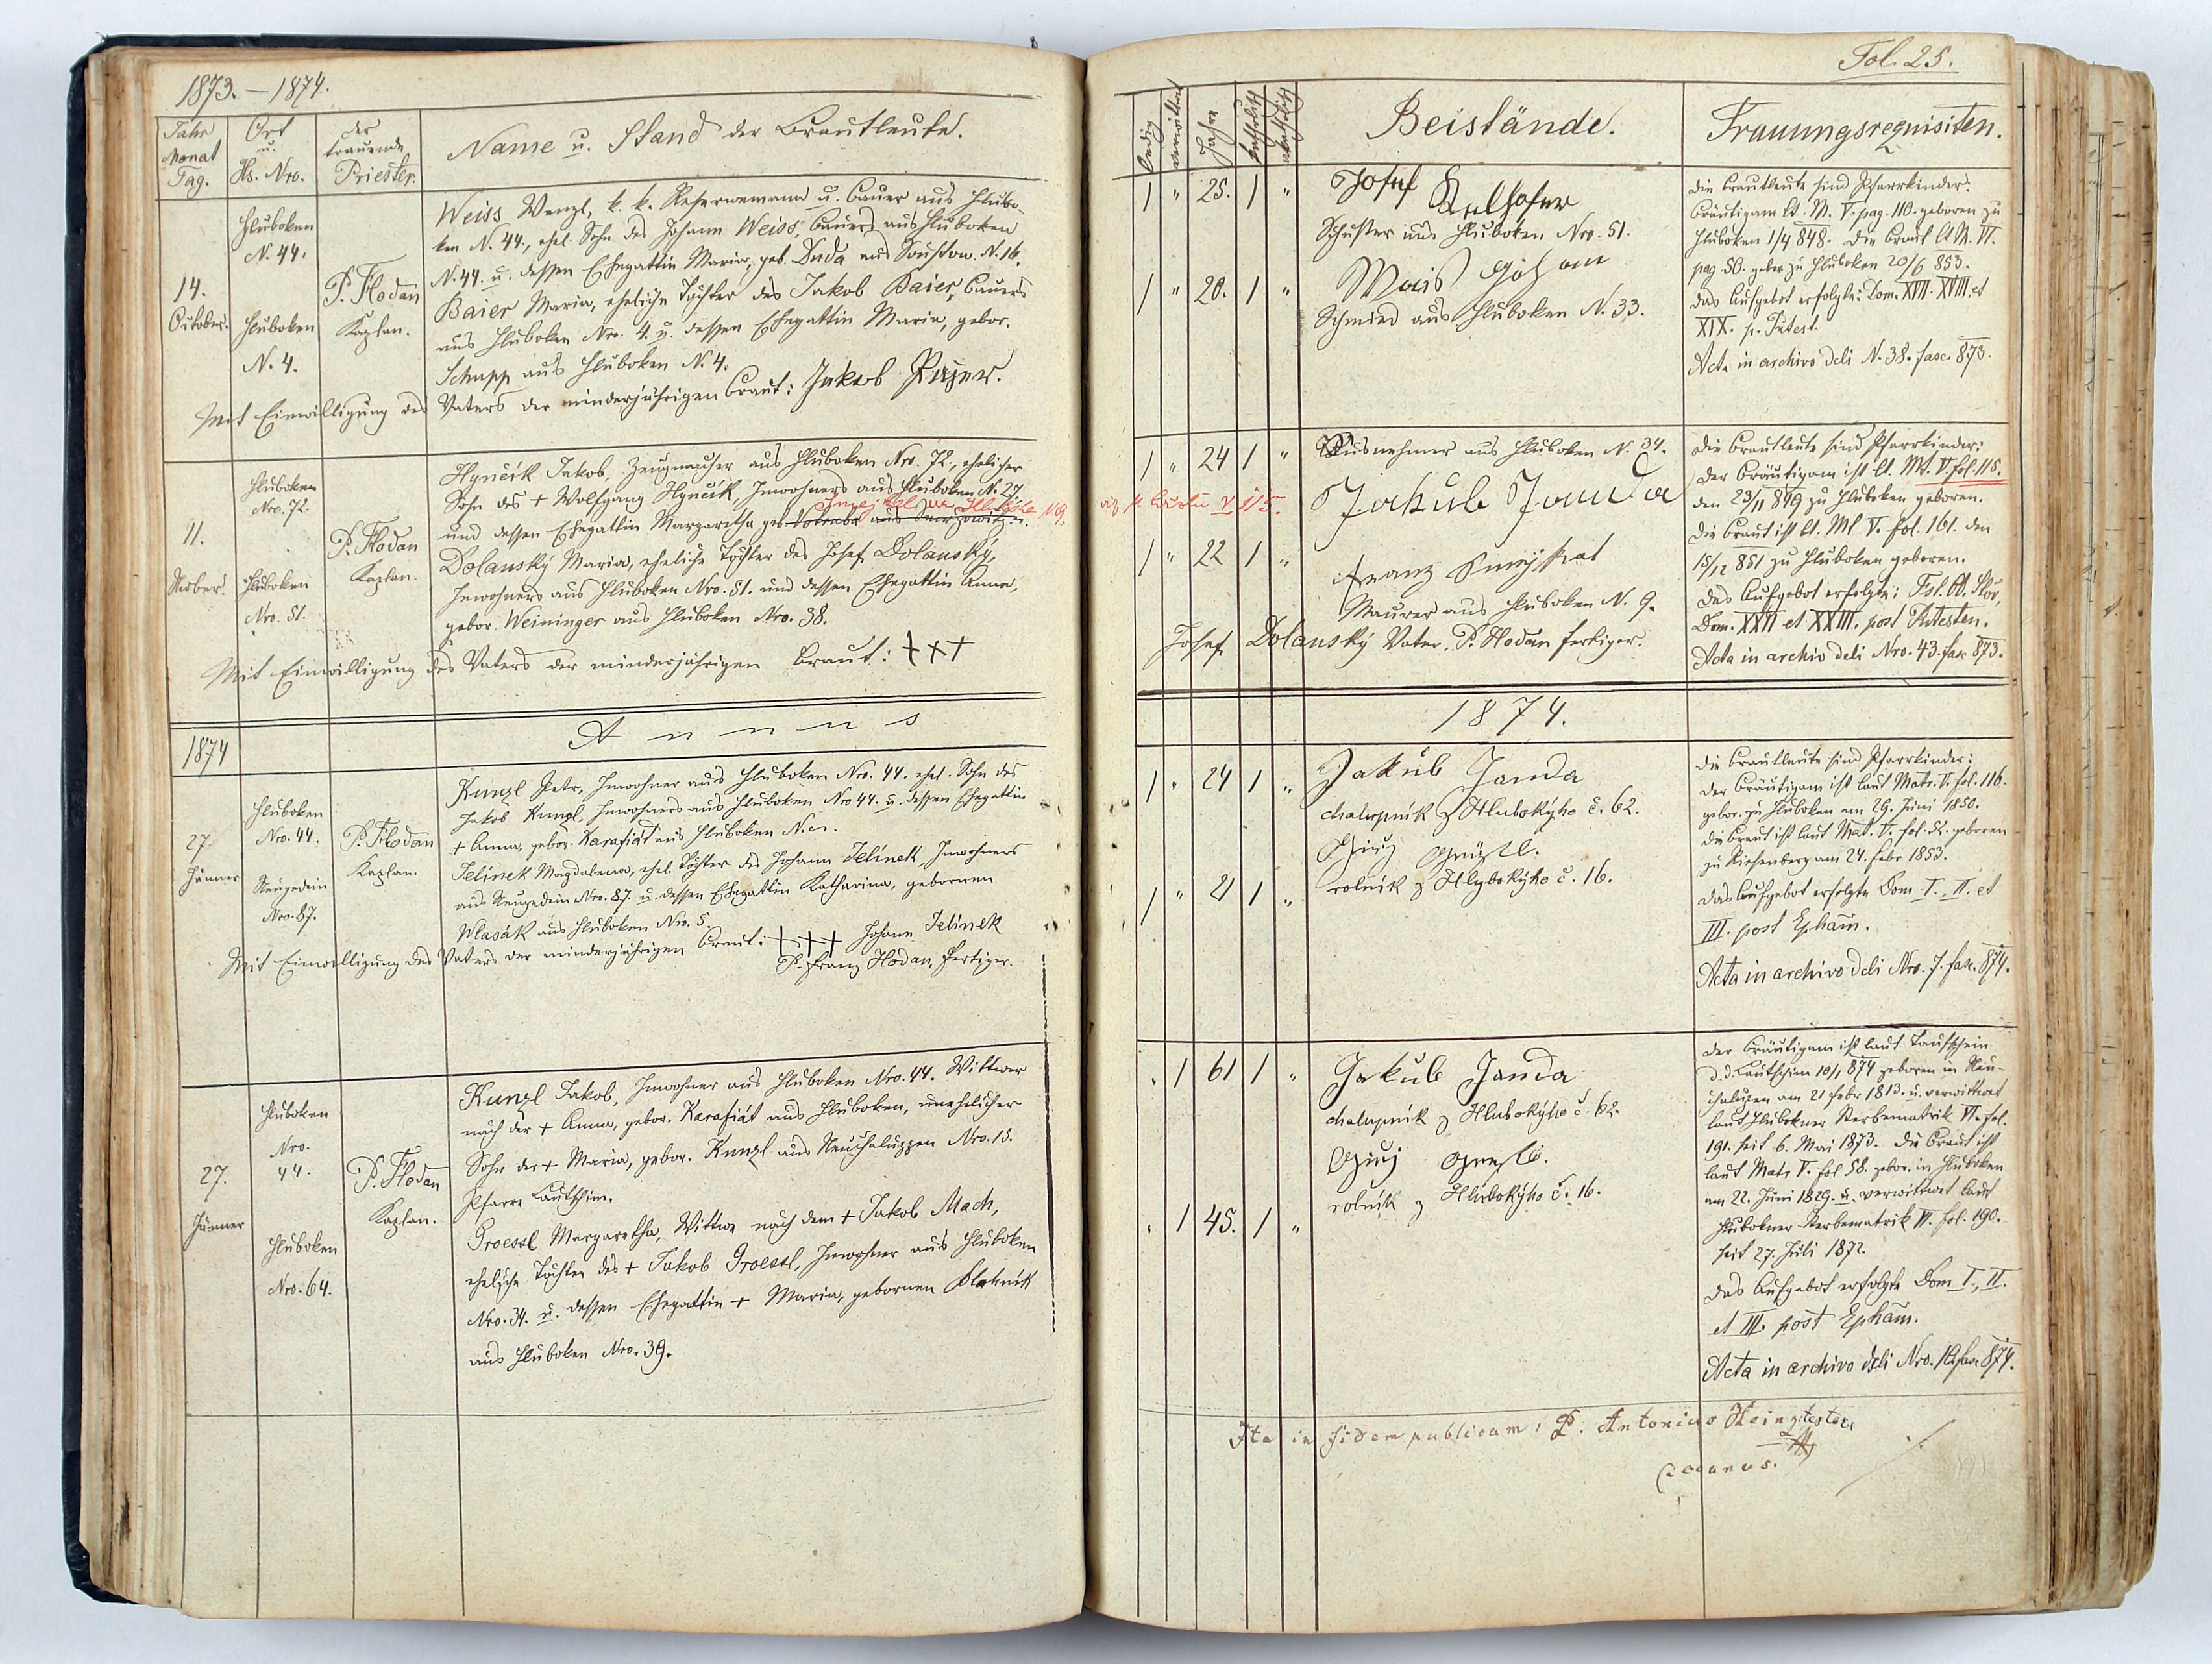 1873.–1874.
Jahr
Monat
Tag.
Ort
u.
Hs. Nro.
der
trauende
Priester.
Name u. Stand der Brautleute.
14.
October.
Hluboken
N. 44.
Hluboken
N. 4.
P. Hodan
Kaplan.
Weiss Wenzl, k. k. Reservemann u. Bauer aus Hlubo-
ken N. 44., ehel. Sohn des Johann Weiss, Bauers aus Hluboken
N. 44. u. dessen Ehegattin Maria, geb. Duda aus N. 16.
Baier Maria, eheliche Tochter des Jakob Baier, Bauers
aus Hluboken Nro. 4. u. dessen Ehegattin Maria, gebor.
Schupp aus Hluboken N. 4.
Mit Einwilligung des Vaters der minderjährigen Braut: Jakob
11.
Hluboken
Nro. 72.
Hluboken
Nro. 51.
P. Hodan
Kaplan.
Hynčík Jakob, Zeugmacher aus Hluboken Nro. 72., ehelicher
Sohn des + Wolfgang Hynčik, Inwohners aus Hluboken N. 27.
und dessen Ehegattin Margaretha geb. aus
Dolanský Maria, eheliche Tochter des Josef Dolanský,
Inwohners aus Hluboken Nro. 51. und dessen Ehegattin Anna,
gebor. Weininger aus Hluboken Nro. 38.
Mit Einwilligung des Vaters der minderjährigen Braut: +++
1874
Annus
27.
Jänner
Hluboken
Nro. 44.
Neugedein
Nro. 87.
P. Hodan
Kaplan.
Kunzl Petr, Inwohner aus Hluboken Nro. 44. ehel. Sohn des
Jakob Kunzl, Inwohners aus Hluboken Nro 44. u. dessen Ehegattin
+ Anna, gebor. Karafiát aus Hluboken N.
Jelínek Magdalena, ehel. Tochter des Johann Jelínek, Inwohners
aus Neugedein Nro. 87. u. dessen Ehegattin Katharina, gebornen
Wlasák aus Hluboken Nro. 5.
Mit Einwilligung des Vaters der minderjährigen Braut: +++ Johann Jelínek
P. Franz Hodan, Fertiger.
27.
Jänner
Hluboken
Nro.
44.
Hluboken
Nro. 64.
P. Hodan
Kaplan.
Kunzl Jakob, Inwohner aus Hluboken Nro. 44. Wittwer
nach der + Anna, gebor. Karafiát aus Hluboken, unehelicher
Sohn der + Maria, gebor. Kunzl aus Neuchaluppen Nro. 15.
Pfarre Lautschim.
Groessl Margaretha, Wittwe nach dem + Jakob Mach,
eheliche Tochter des + Jakob Groessl, Inwohner aus Hluboken
Nro. 34. u. dessen Ehegattin + Maria, gebornen
aus Hluboken Nro. 39.
Fol. 25.
ledig
verwittwet
Jahre
katholisch
Beistände.
Trauungsrequisiten.
1 " 25. 1 "
1 " 20. 1 "
Josef
Schuster aus Hluboken Nro. 51.
Schmied aus Hluboken N. 33.
Die Brautleute sind Pfarrkinder.
Bräutigam lt. M. V. pag. 110. geboren zu
Hluboken 1/4 848. Die Braut lt M. VI.
pag 50. gebor zu Hluboken 20/6 853.
Das Aufgebot erfolgte: Dom. XVII. XVIII. et
XIX. p.
Acta in archivo dcli N. 38. fasc. 873.
1 " 24 1 "
1 " 22 1 "
Ausnehmer aus Hluboken N. 34.
Jakub Janda
Franz
Maurer aus Hluboken N. 9.
Josef Dolanský Vater. P. Hodan fertiger.
Die Brautleute sind Pfarrkinder:
Der Bräutigam ist lt. Mt. V. fol. 115.
den 23/11 849 zu Hluboken geboren.
Die Braut ist lt. Mt V. fol. 161. den
15/12 851 zu Hluboken geboren.
Das Aufgebot erfolgte:
Dom. XXII et XXIII. post
Acta in archiv dcli Nro. 43. fasc 873.
1874.
1 " 24 1 "
1 " 21 1 "
Jakub Janda
chalupník z Hlubokýho č. 62.
rolník z Hlubokýho č. 16.
Die Brautleute sind Pfarrkinder:
Der Bräutigam ist laut Matr. V. fol. 116.
gebor. zu Hluboken am 29. Juni 1850.
Die Braut ist laut Mat. V. fol. 52. geboren
zu Riesenberg am 24. Febr 1853.
Das Aufgebot erfolgte Dom I., II. et
III. post Epham.
Acta in archivo dcli Nro. 7. fasc. 874.
. 1 61 1 "
. 1 45. 1 "
Jakub Janda
chalupník z Hlubokýho č. 62.
rolník z Hlubokýho č. 16.
Der Bräutigam ist laut Taufschein
d. d. Lautschim 10/1 874 geboren in Neu-
chalupen am 21 Febr 1813. u. verwittwet
laut Hlubokner Sterbematrik VI. fol.
191. seit 6. Mai 1873. Die Braut ist
laut Matr V. fol 58. gebor. in Hluboken
am 22. Juni 1829. u. verwittwet laut
Hlubokner Sterbematrik VI. fol. 190.
seit 27. Juli 1872.
Das Aufgebot erfolgte Dom I., II.
et III. post Epham.
Acta in archivo dcli Nro. fasc 874.
Ita in fidem publicam: P. Antonius